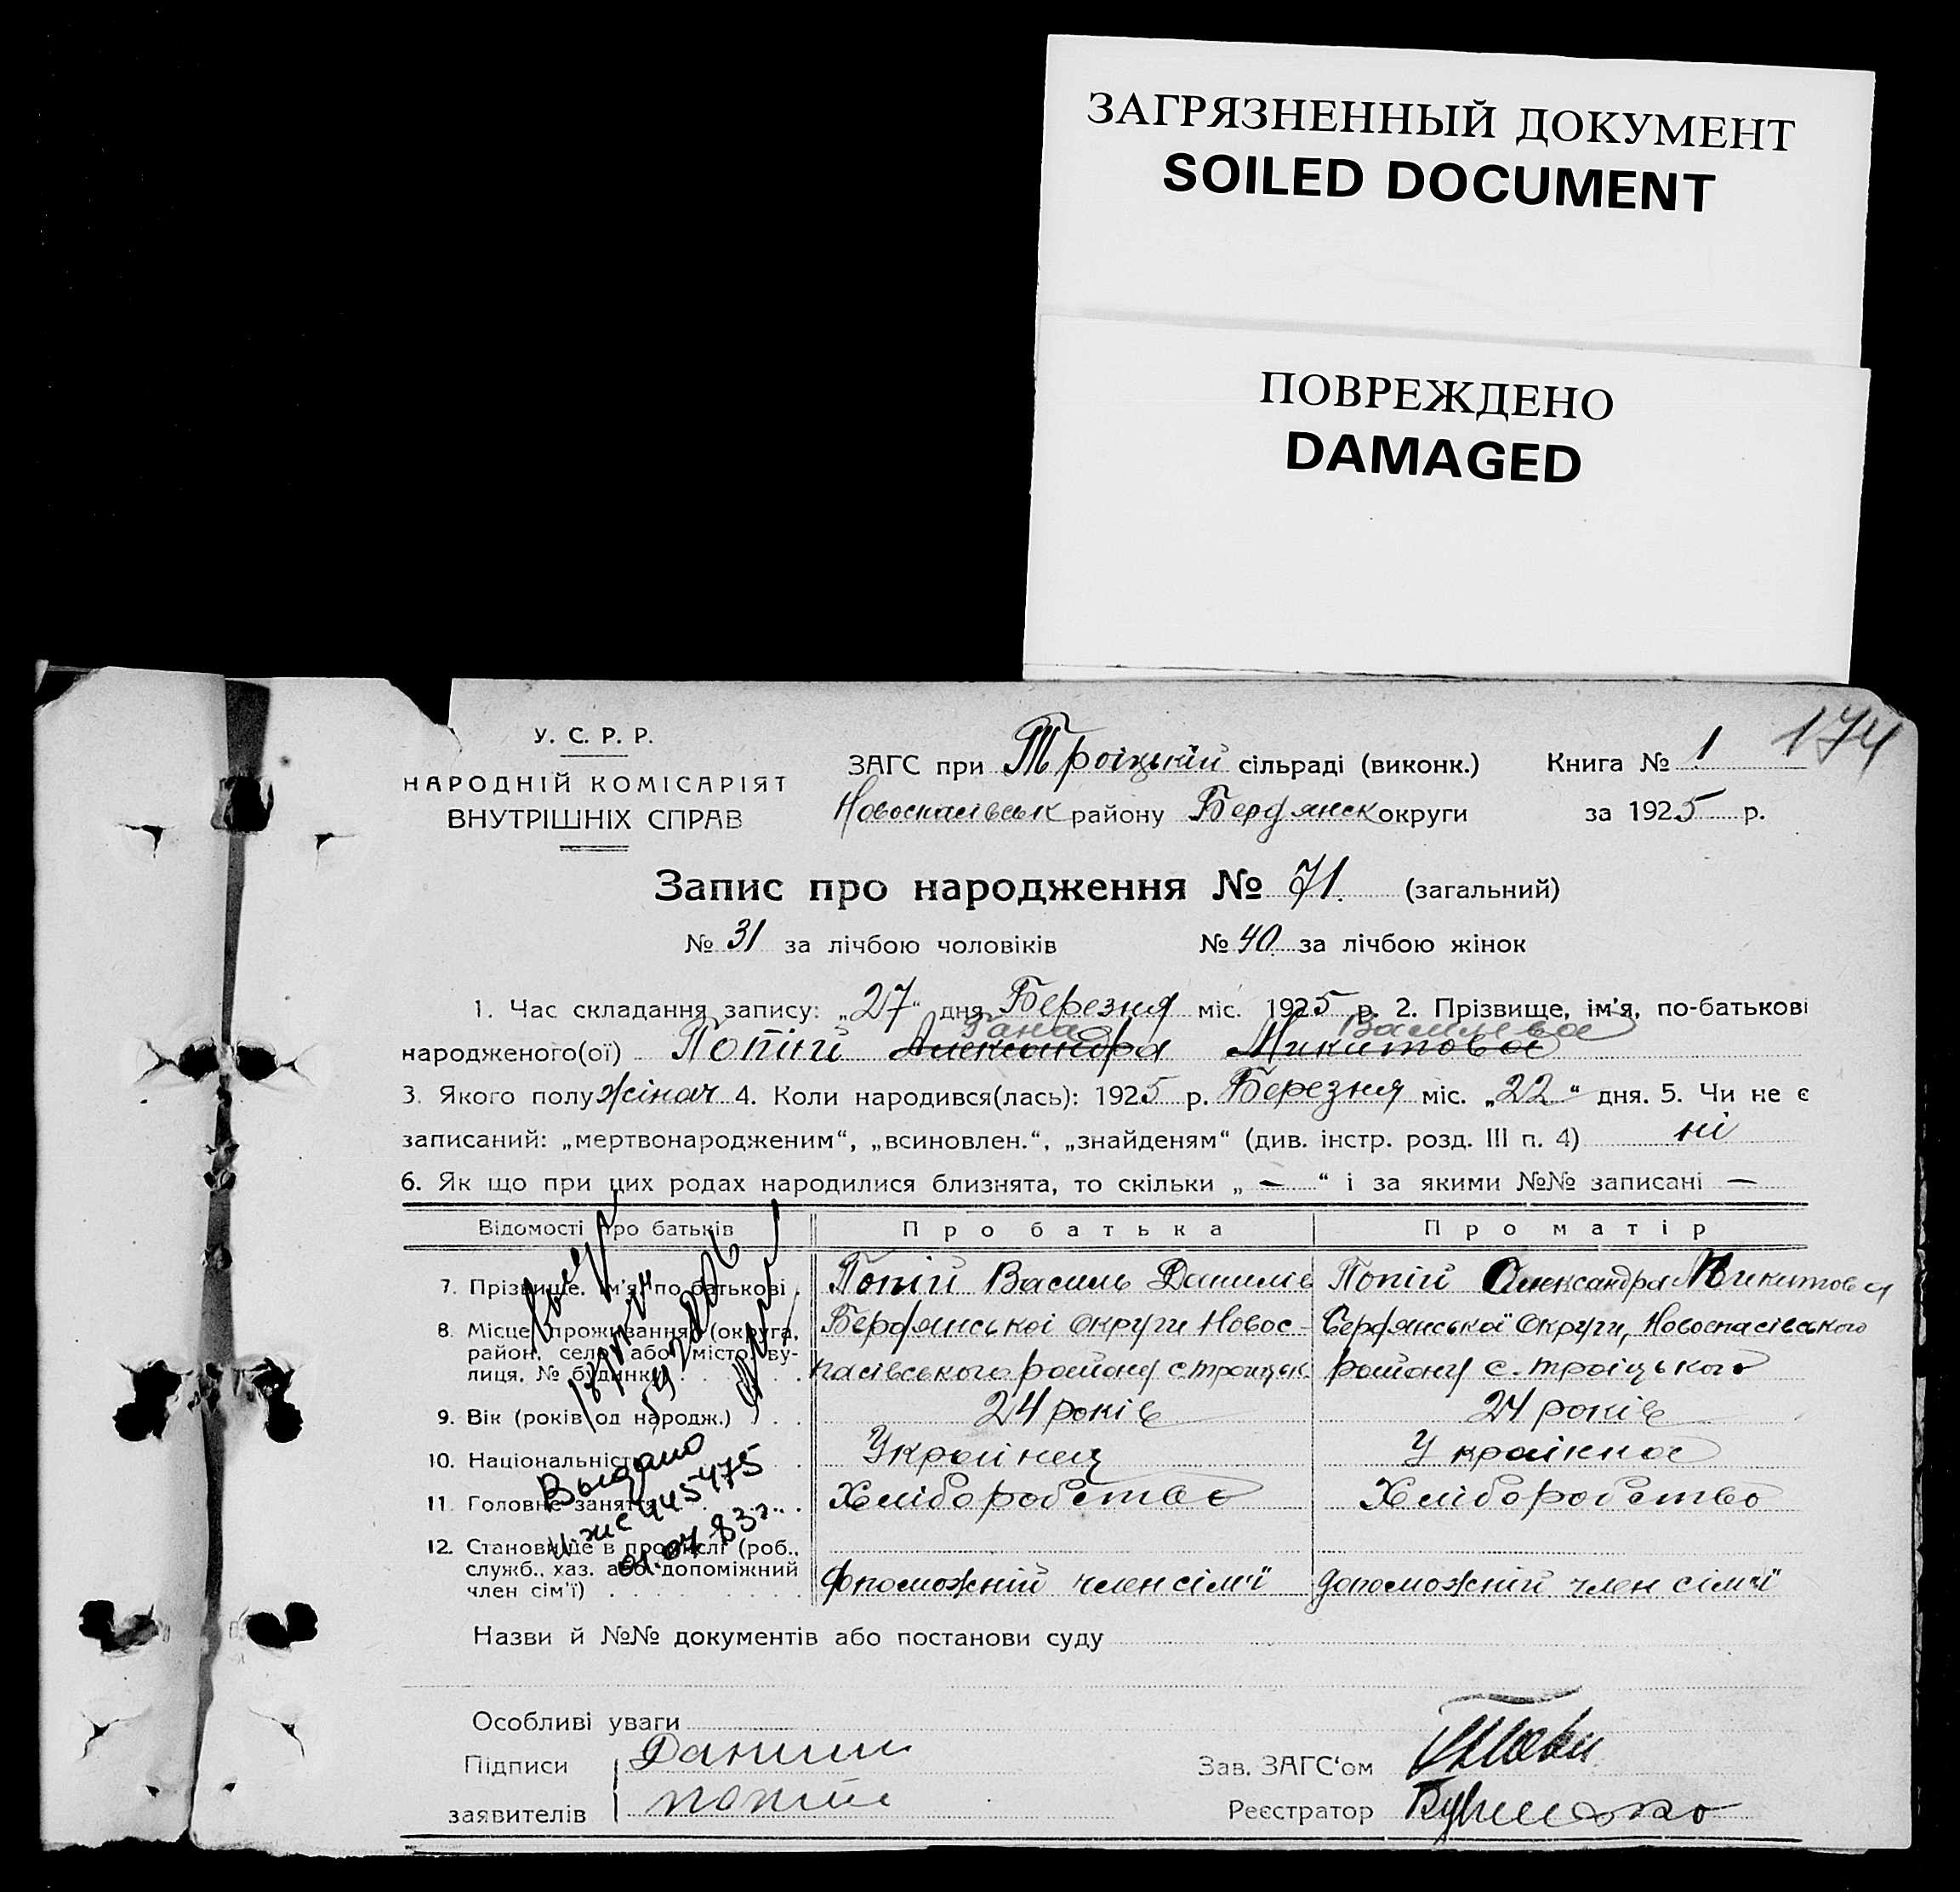 ЗАГРЯЗНЕННЫЙ ДОКУМЕНТ
SOILED DOCUMENT
ПОВРЕЖДЕНО
DAMAGED
174
У. С. Р. Р.
НАРОДНІЙ КОМІСАРІЯТ
ВНУТРІШНІХ СПРАВ
ЗАГС при Троіцькій сільраді (виконк.) Книга № 1
Новоспасівськ району Бердянск округи за 1925 р.
Запис про народження № 71. (загальний)
№ 31 за лічбою чоловіків № 40. за лічбою жінок
1. Час складання запису: „27“ дня Березня міс. 1925 р. 2. Прізвище, ім'я, по-батькові
Ганна Васильева
народженого(ої) Попій Александра Микитова
3. Якого полу жіноч 4. Коли народився(лась): 1925 р. Березня міс. „22“ дня. 5. Чи не є
записаний: „мертвонародженим“, „всиновлен.“, „знайденям“ (див. інстр. розд. III п. 4) ні
6. Як що при цих родах народилися близнята, то скільки „ — “ і за якими №№ записані —
Відомості про батьків Про батька Про матір
7. Прізвище, ім'я, по батькові . Попій Василь Данилів Попій Олександра Микитовая
8. Місце проживання (округа, Бердянської округи Новос- Бердянської Округи, Новоспасівського
район, село або місто, ву- пасівського району с троицьк. району с. троіцького
лиця, № будинку) . . . .
9. Вік (років од народж.) . . . 24 років 24 років
10. Національність . . . Украінец Украінка
11. Головне заняття . . . . Хліборобство Хліборобство
12. Становище в промислі (роб.,
служб., хаз. або допоміжний
член сім'ї) . . . . . . допоможній член сімʼї допоможній член сімʼї
Выдано
445475
01.04.83г.
Назви й №№ документів або постанови суду
Особливі уваги
Підписи Данило
заявителів попій
Зав. ЗАГС'ом
Реєстратор